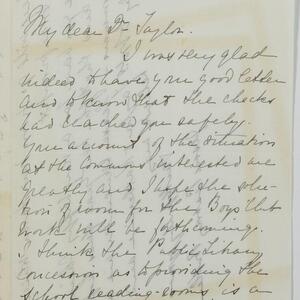 My dear Dr Taylor.
I was very glad
indeed to have your good letter
and to know that the checks
had reached you safely.
Your account of the situation
at the Commons interested me
greatly and I hope the solu-
tion of room for the Boys' Club
work will be forthcoming.
I think the Public Library
concession as to providing the
school reading-rooms is a